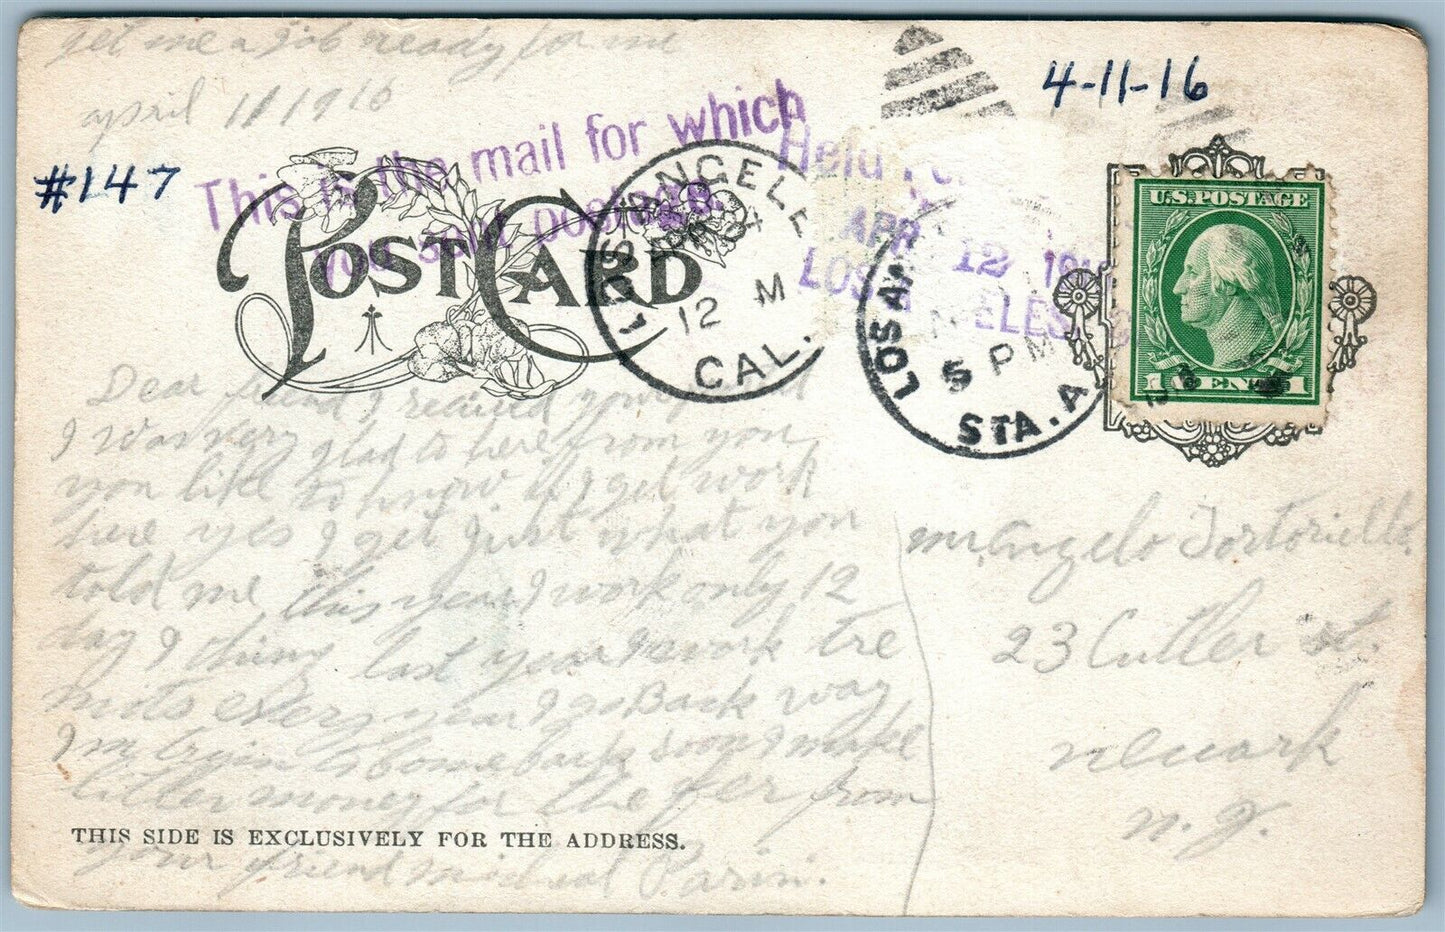 get me a job ready for me
april 11 1916
4-11-16
#147
This is the mail for which
you sent postage.
Held For
APR 12 191
LOS ANGELES, C
POST CARD
LOS ANGELES
APR
12 M
CAL.
LOS AN
5 PM
STA. A
U.S. POSTAGE
1 CENT 1
Dear friend I recived your
I was very glad to here from you
you like to know if I get work
here yes I get just what you
told me this year I work only 12
day I thing last year I work tre
mots every year I go Back way
I m tryin to come back soon I make
litter money for the fer from
THIS SIDE IS EXCLUSIVELY FOR THE ADDRESS.
your friend micheal Parisi.
mr. Angelo Tortoriello
23 Cutler st.
newark
n. J.